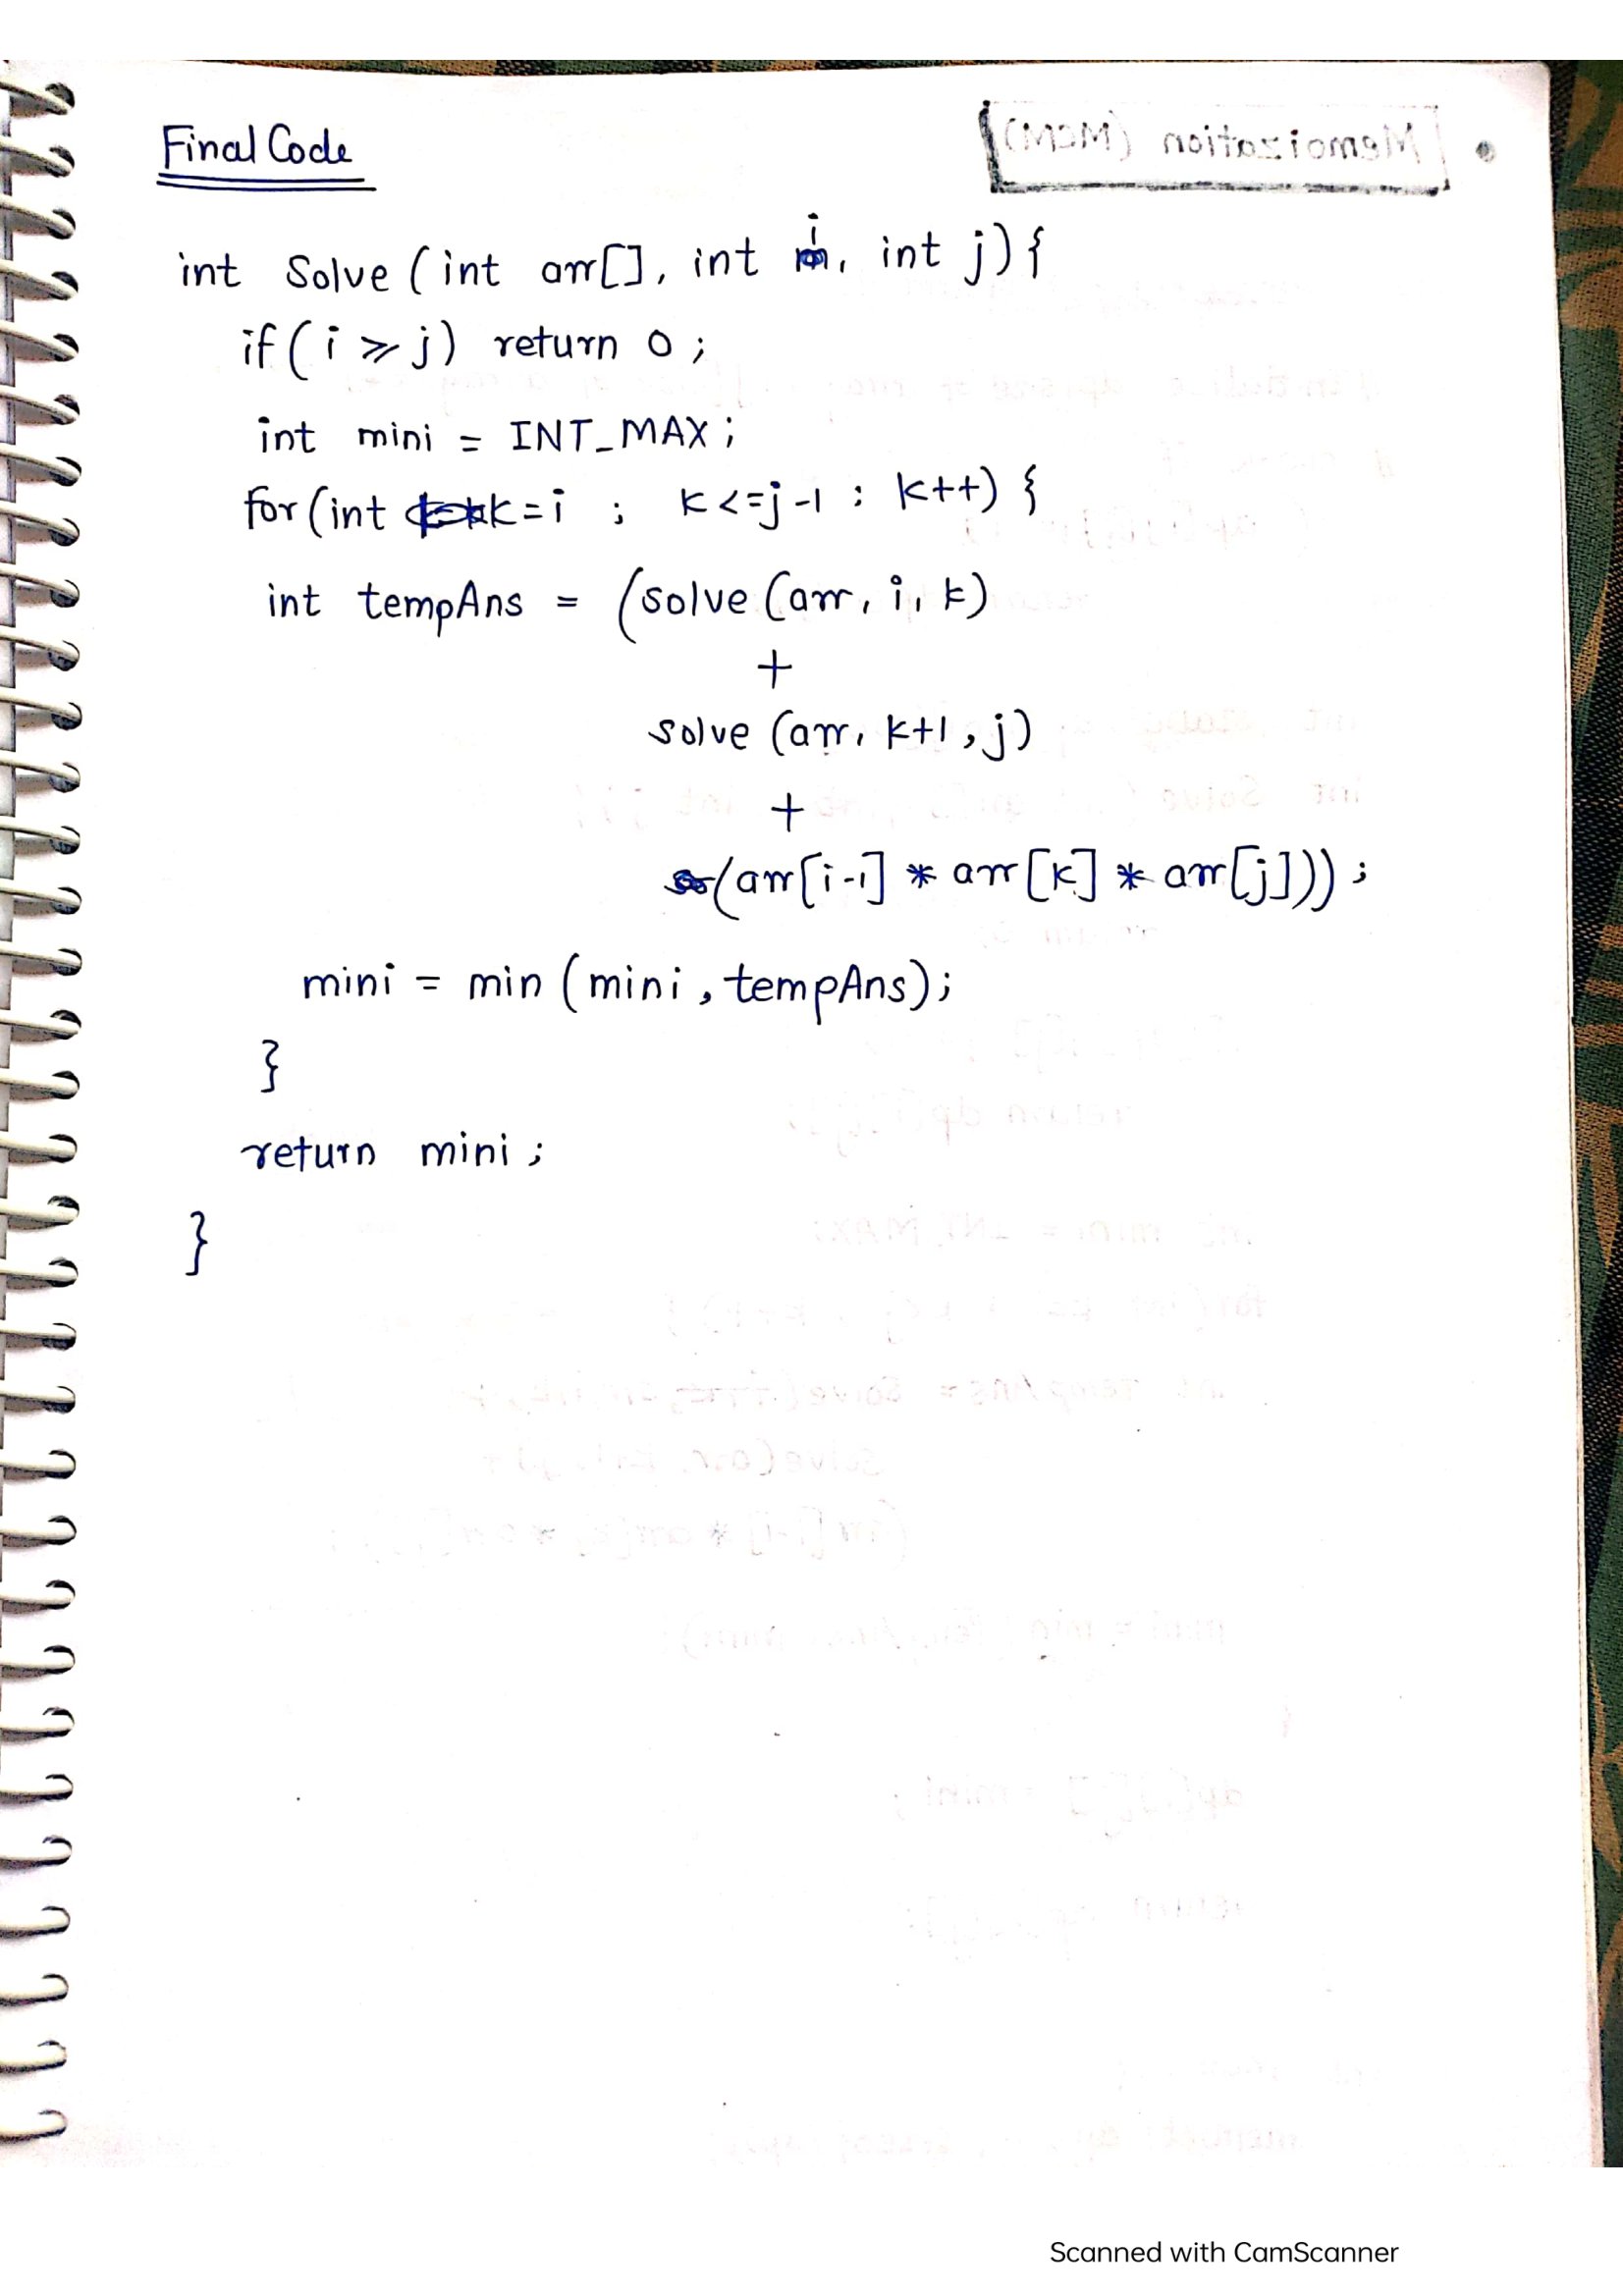 Final Code
int Solve (int arr[], int i, int j) {
if (i >= j) return 0 ;
int mini = INT_MAX ;
for (int k = i ; k <= j-1 ; k++) {
int tempAns = (solve (arr, i, k)
+
solve (arr, k+1, j)
+
(arr[i-1] * arr[k] * arr[j])) ;
mini = min (mini, tempAns);
}
return mini ;
}
Scanned with CamScanner